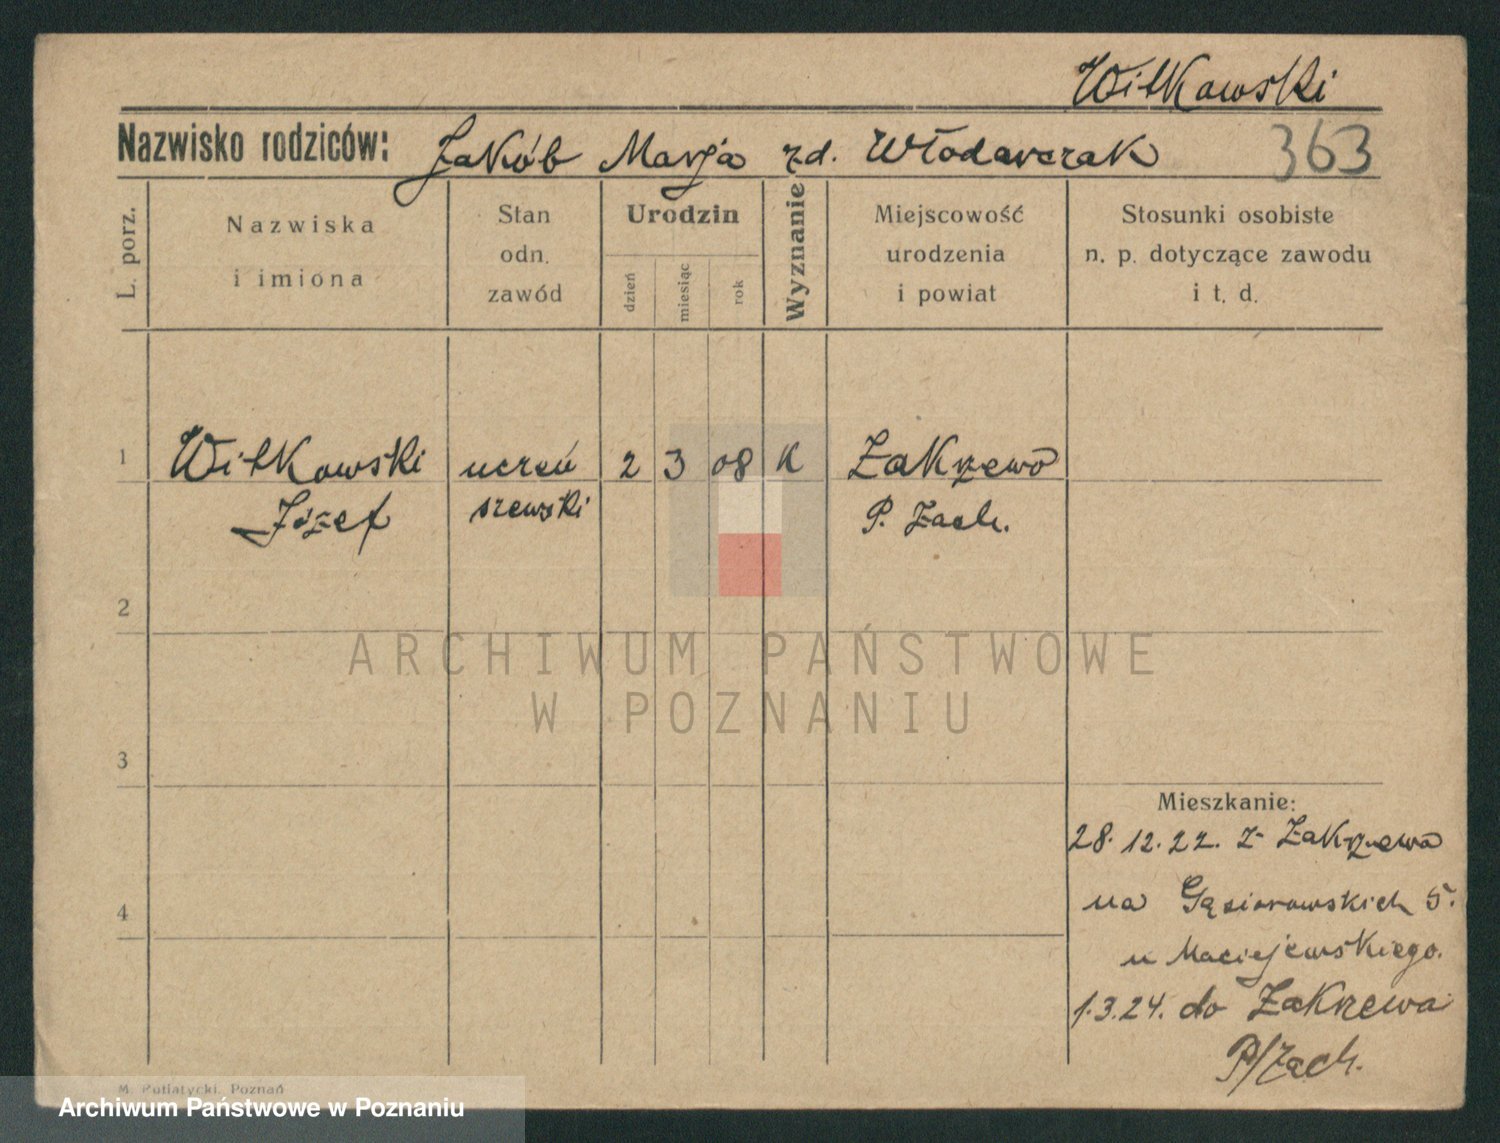 Witkowski
Nazwisko rodziców: Jakób Marja zd. Włodarczak 363
L. porz.
Nazwiska
i imiona
Stan
odn.
zawód
Urodzin
dzień
miesiąc
rok
Wyznanie
Miejscowość
urodzenia
i powiat
Stosunki osobiste
n. p. dotyczące zawodu
i t. d.
1 Witkowski uczeń 2 3 08 K Zakrzewo
Józef szewski P. Zach.
2
3
Mieszkanie:
28.12.22. z Zakrzewa
na Gąsiorowskich 5.
4
u Maciejewskiego.
1.3.24. do Zakrzewa
P/Zach.
M. Putiatycki, Poznań
ARCHIWUM PAŃSTWOWE
W POZNANIU
Archiwum Państwowe w Poznaniu